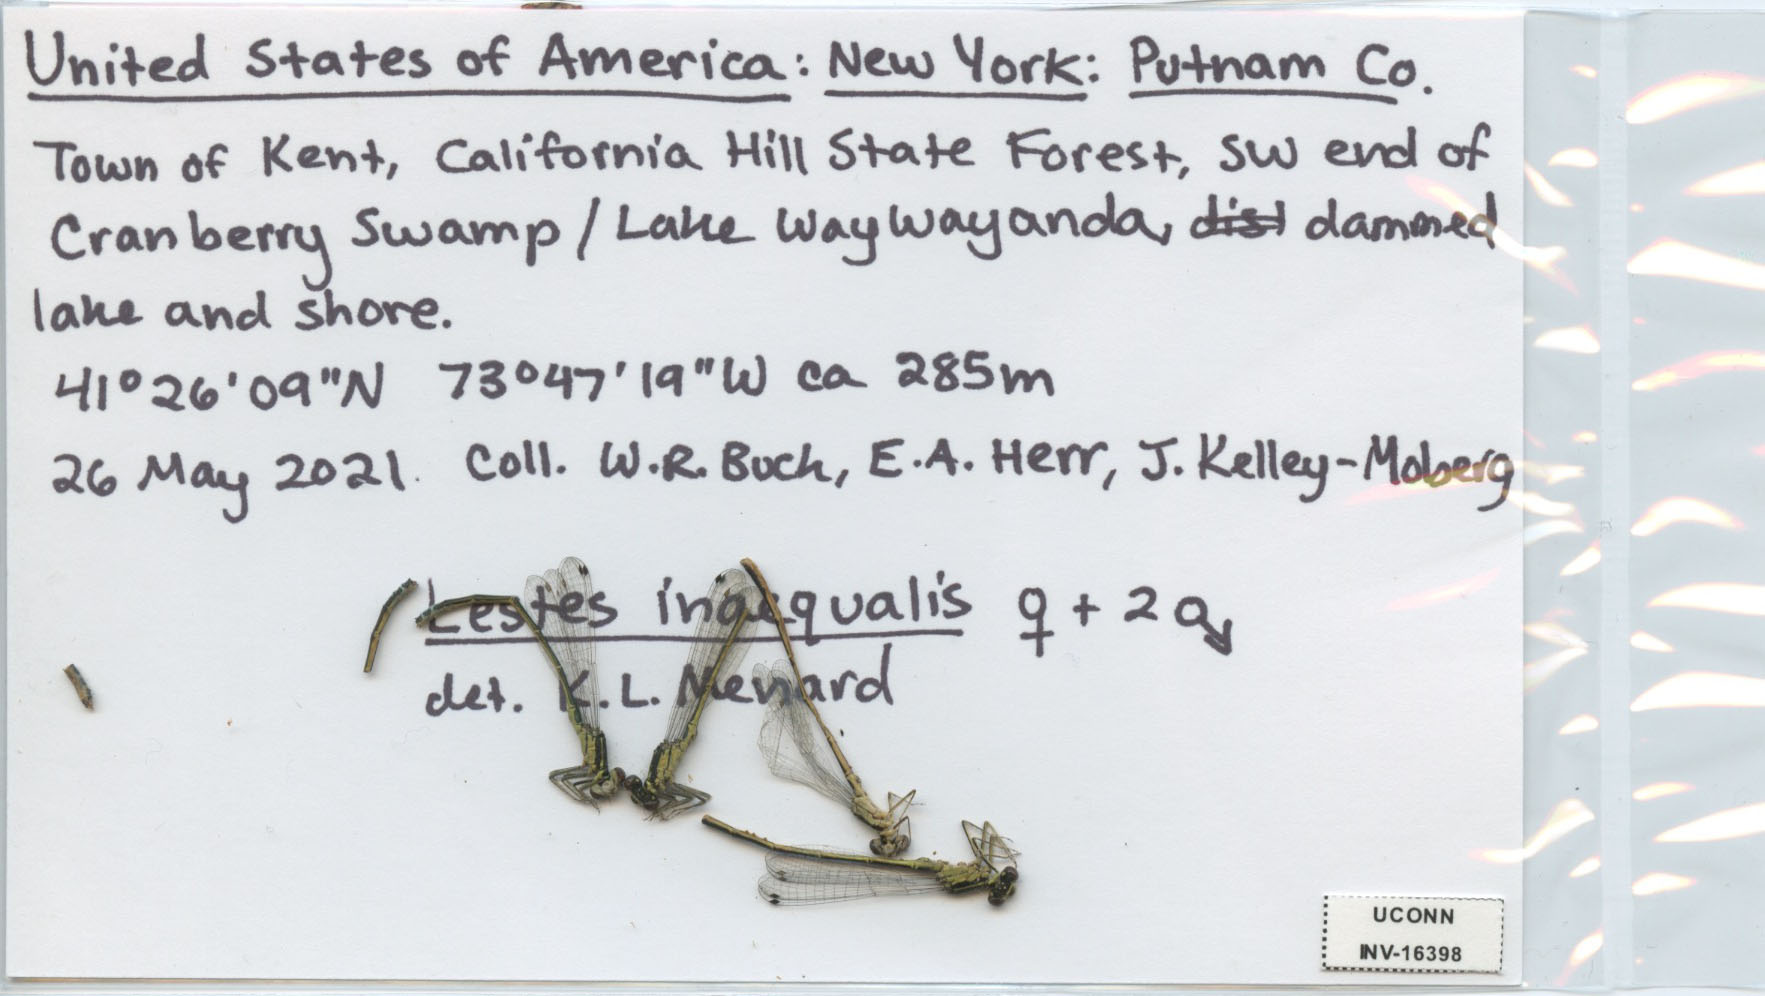 United States of America: New York: Putnam Co.
Town of Kent, California Hill State Forest, SW end of
Cranberry Swamp / Lake Waywayanda, dist dammed
lake and shore.
41°26'09"N 73°47'19"W ca 285m
26 May 2021. Coll. W.R. Buck, E.A. Herr, J. Kelley-Moberg
Lestes inaequalis ♀ + 2 ♂
det. K.L. Menard
UCONN
INV-16398